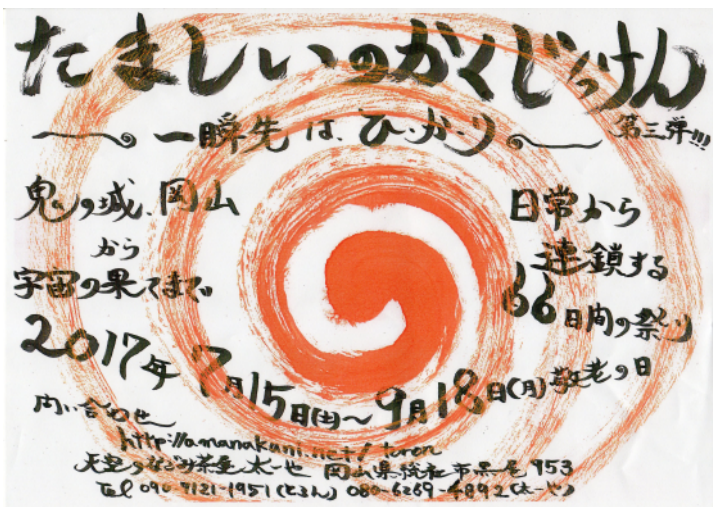 たましいのかくじっけん
一瞬先は、ひ・か・り
第三弾!!!
鬼の城、岡山
から
宇宙の果てまで
日常から
連鎖する
66日間の祭り
2017年7月15日(土)〜9月18日(月)敬老の日
問い合わせ
http://amanakuni.net/toren
天空のなごみ茶屋 太一也 岡山県総社市黒尾953
Tel 090-9121-1951(とろん) 080-6269-4892(太一也)